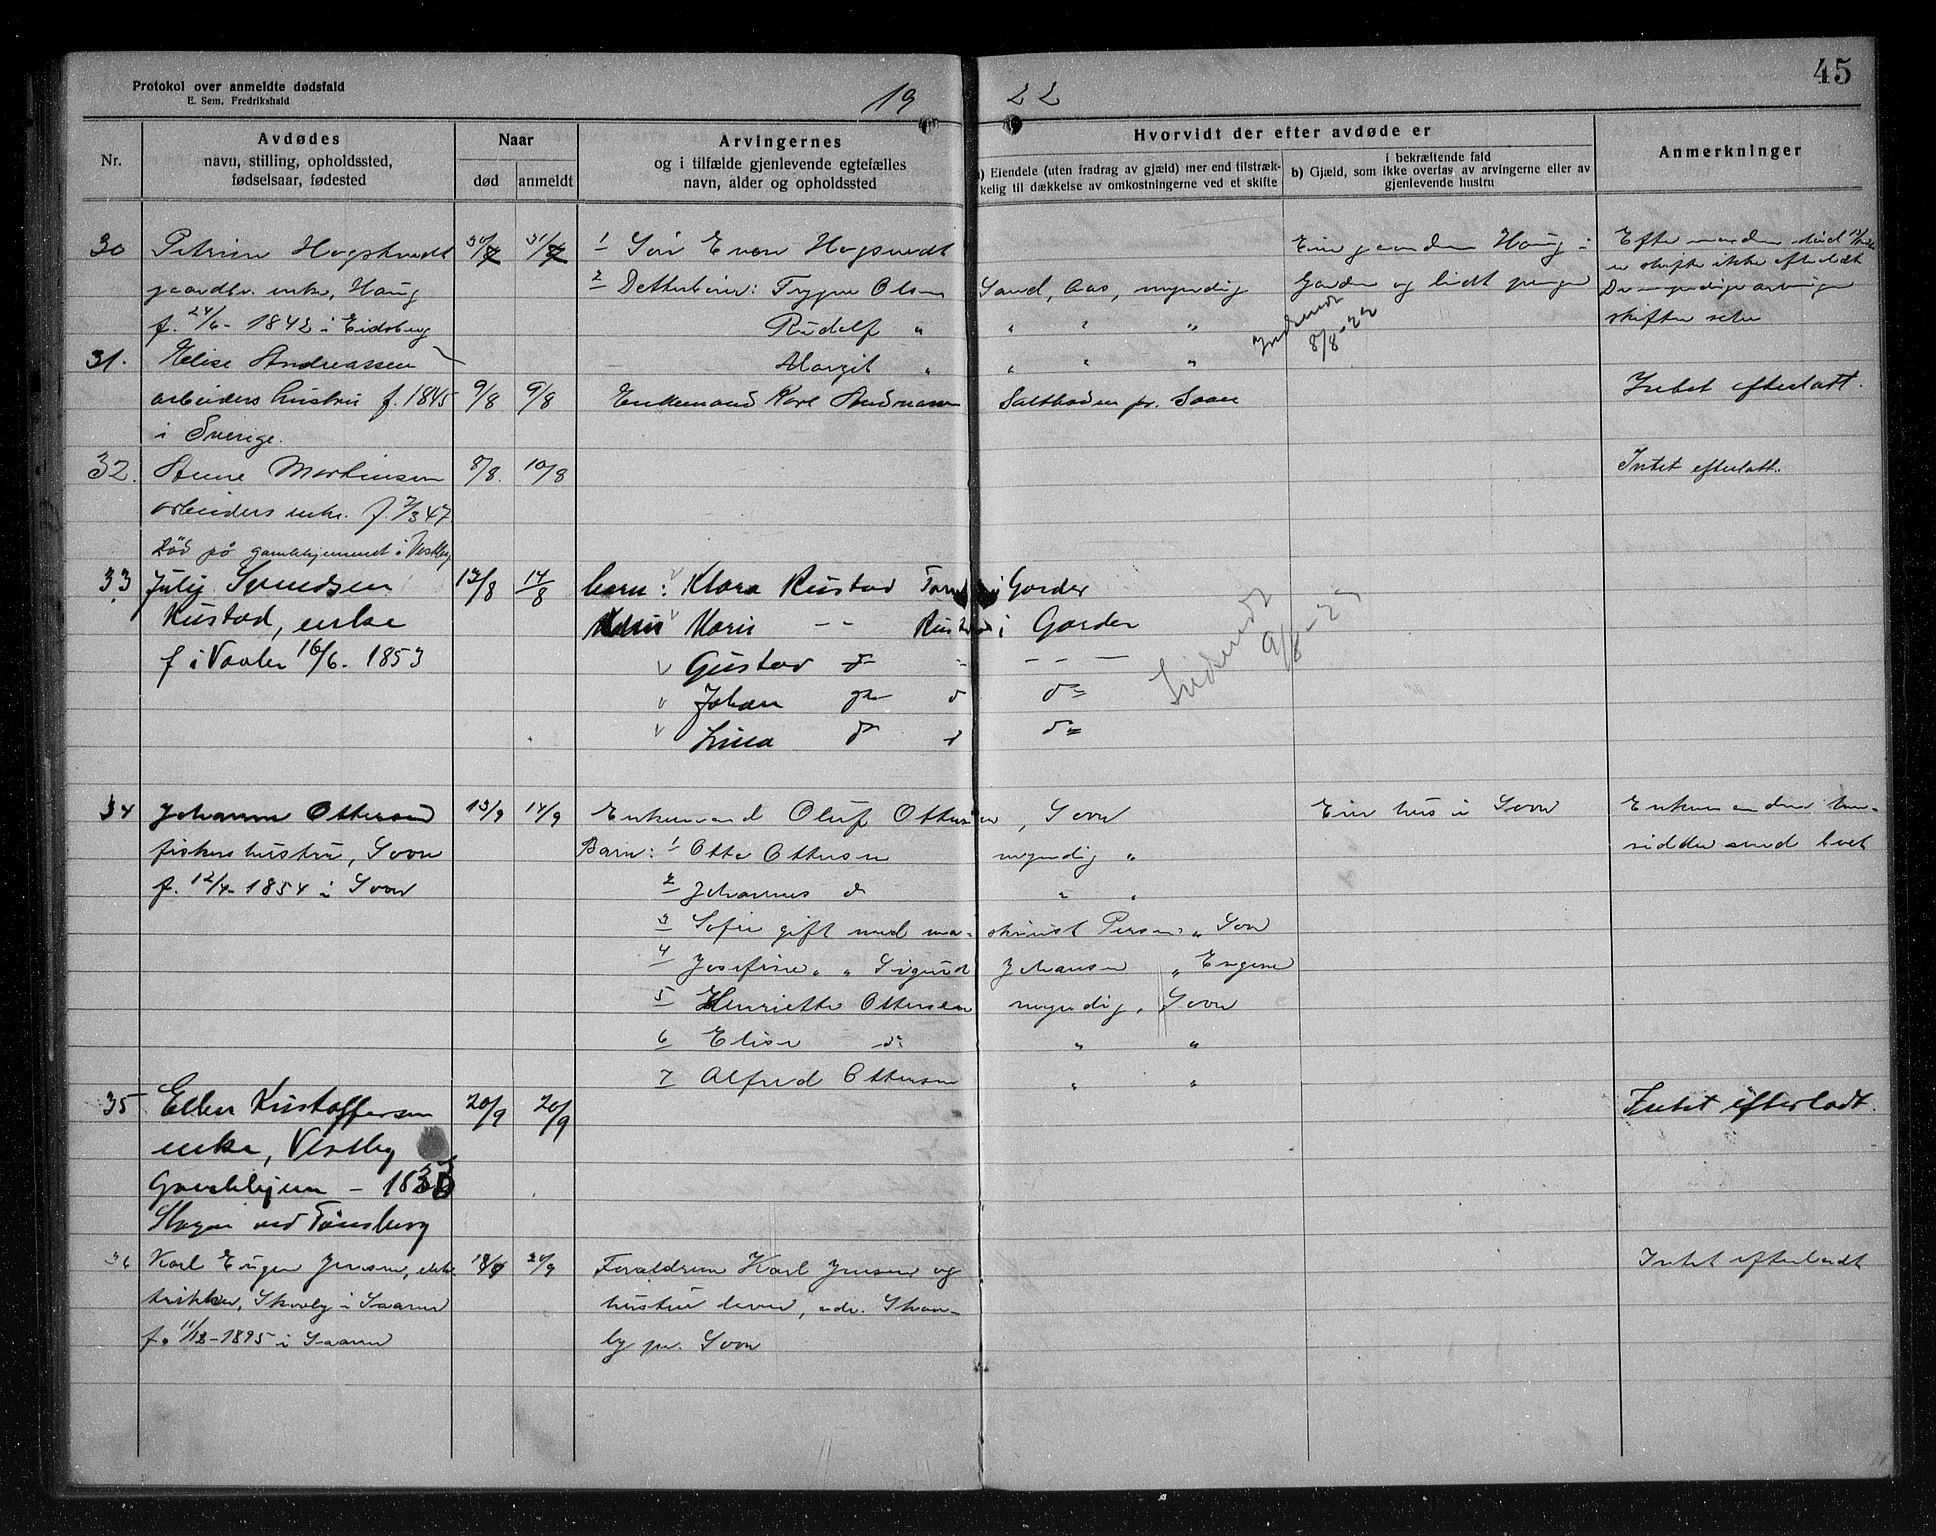 Protokol over anmeldte dødsfald
E. Sem. Fredrikshald
19 22
45
Nr.
Avdødes
navn, stilling, opholdssted,
fødselsaar, fødested
Naar
død anmeldt
Arvingernes
og i tilfælde gjenlevende egtefælles
navn, alder og opholdssted
Hvorvidt der efter avdøde er
a) Eiendele (uten fradrag av gjæld) mer end tilstræk-
kelig til dækkelse av omkostningerne ved et skifte
i bekræftende fald
b) Gjæld, som ikke overtas av arvingerne eller av
gjenlevende hustru
Anmerkninger
30 Petrine 30/7 31/7 1
gaardbr. enke, Haug
f. 24/6 - 1842 i Eidsberg
2 Datterbørn: Trygve Olsen Sand, Aas, myndig
Rudolf " " " "
Margit " " " "
Eier gaarden Haug i
Garder og lidt penger
Indsendt
8/8-22
skifter selv
31. Elise Andreassen
arbeiders hustru f. 1845 9/8 9/8 Enkemand Karl Andreassen Saltboden pr. Soon Intet efterladt.
i Sverige.
32. Anne Martinsen 8/8. 10/8 Intet efterlatt.
arbeiders enke. f. 7/3 47.
Død på gamlehjemmet i Vestby
33. Julie Svendsen 13/8 14/8 barn: Klara Rustad i Garder
Rustad, enke Karen -"- Rustad i Garder
f i Vaaler 16/6 - 1853 Gustav do - - - -
Johan do do do
Lina do do do
Indsendt
9/8-2
34 Johanne Ottersen 13/9 14/9 Enkemand Oluf Ottersen, Soon Eier hus i Soon
fiskers hustru, Soon Barn: 1 Otto Ottersen myndig "
f. 12/4 - 1854 i Soon 2 Johannes do " "
Enkemanden hen-
sidder med boet
3 Sofie gift med maskinist Persen, " Son
4 Josefine " " Sigurd Johansen "
5 Henriette Ottersen myndig, Soon
6 Elise do " "
7 Alfred Ottersen " "
35. Ellen Kristoffersen 20/9 20/9 Intet efterladt.
enke, Vestby
Gamlehjem -
Slagen ved Tønsberg
36 Karl Eugen Jensen, elek- Forældrene Karl Jensen og Intet efterladt
trikker, Skovby i Saaner hustru lever, adr. Skov-
f. 11/12-1895 i Saaner by pr. Soon